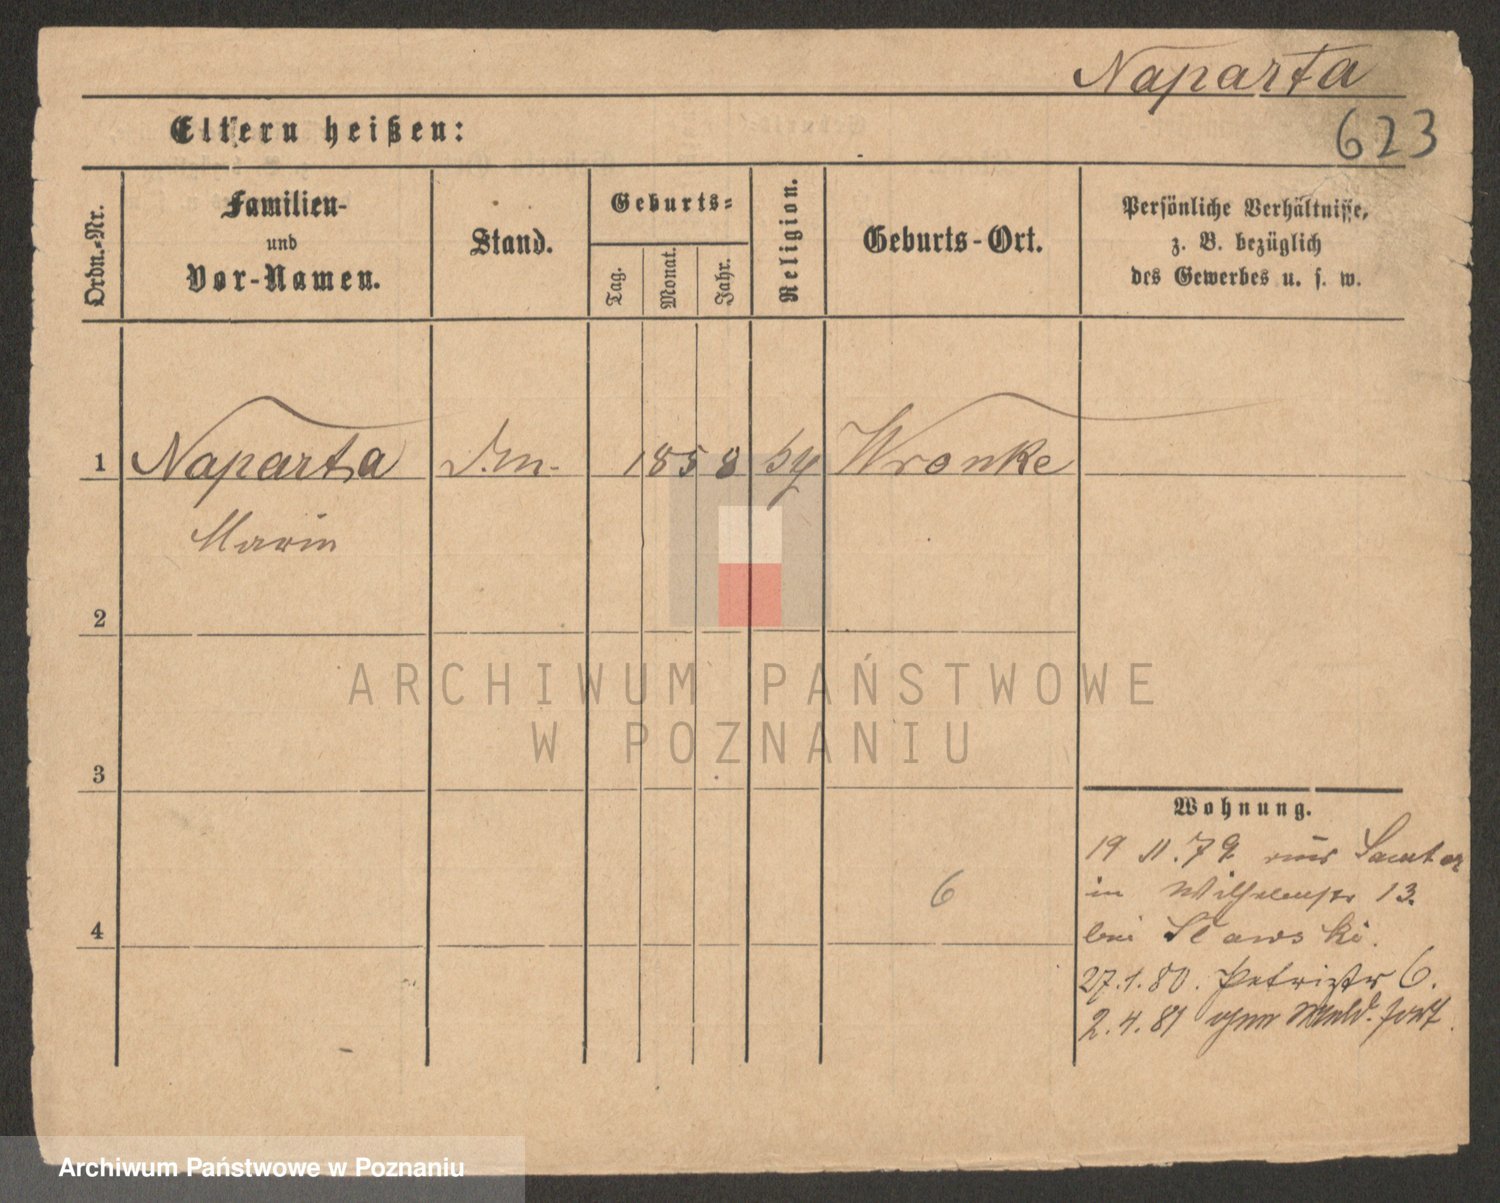 Naparta
623
Eltern heißen:
Ordn.-Nr.
Familien-
und
Vor-Namen.
Stand.
Geburts-
Tag.
Monat.
Jahr.
Religion.
Geburts-Ort.
Persönliche Verhältnisse,
z. B. bezüglich
des Gewerbes u. s. w.
1 Naparta 1858 Wronke
Marie
2
ARCHIWUM PAŃSTWOWE
W POZNANIU
3
Wohnung.
19 11. 79. aus Samter
in Wilhelmstr 13.
6
bei Slawski.
4
27.1.80. Petristr 6.
2.4.81 ohne Meld. fort.
Archiwum Państwowe w Poznaniu